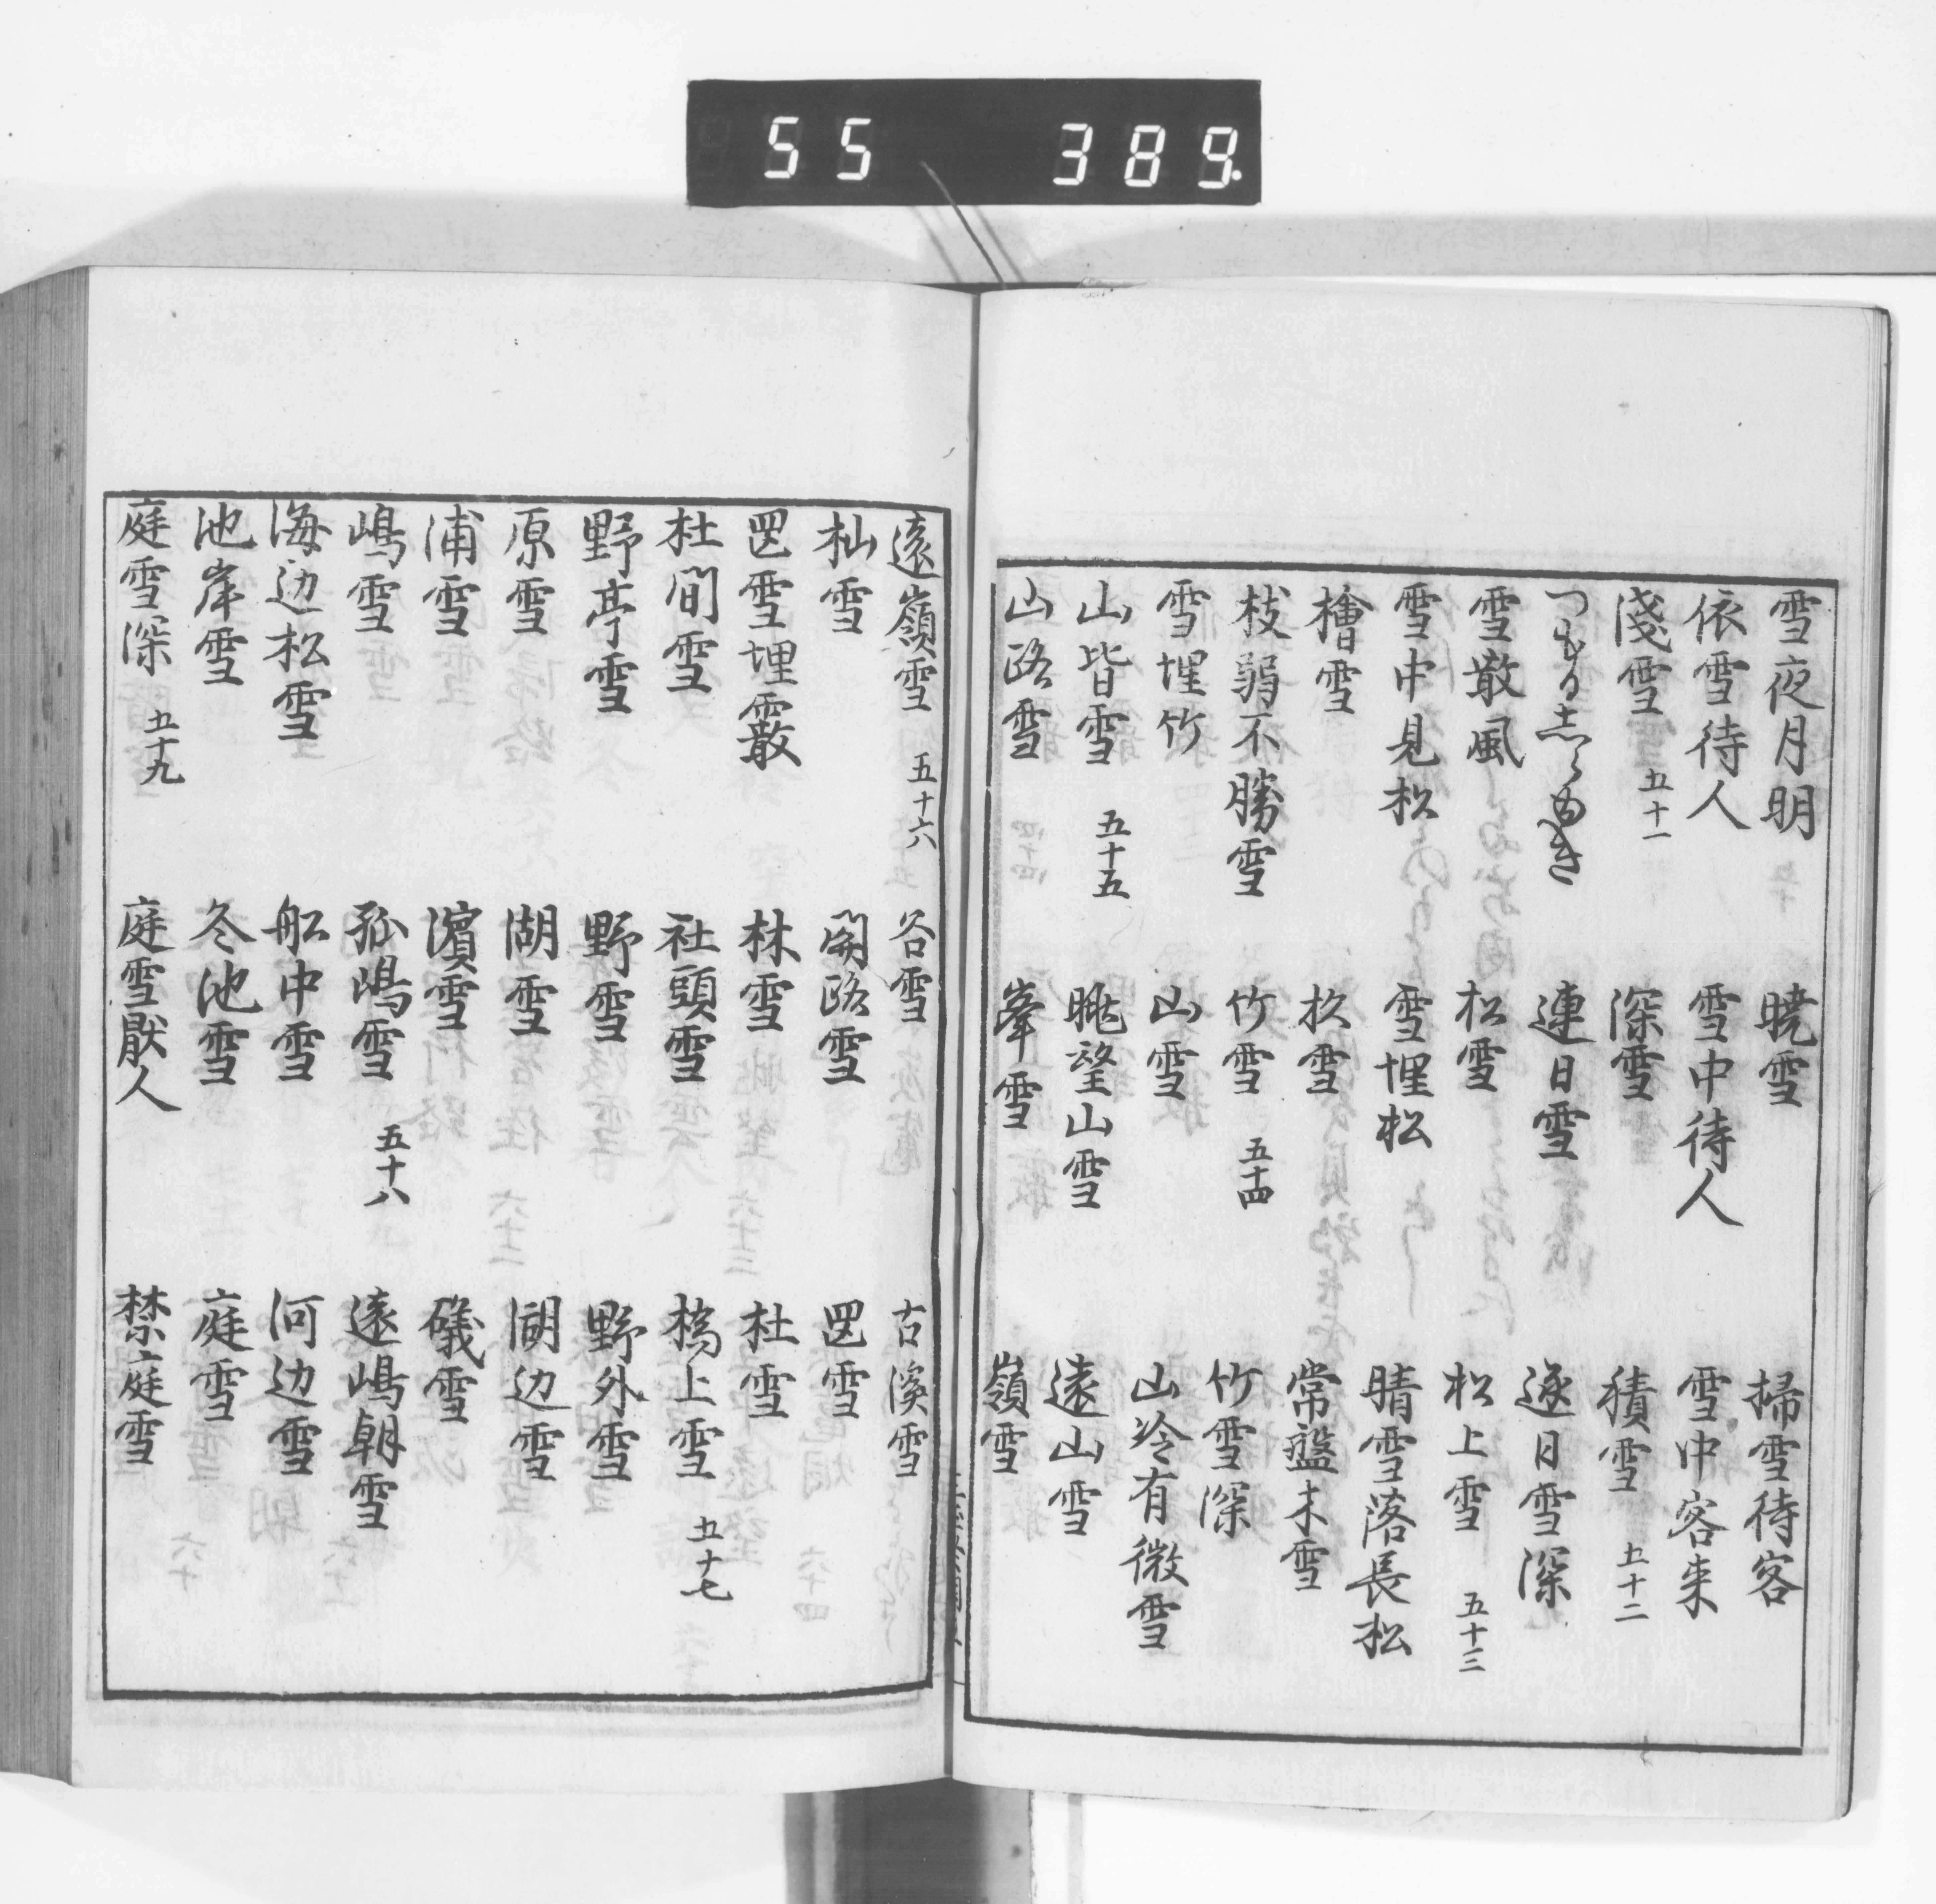 55 389
雪夜月明 暁雪 掃雪待客
依雪待人 雪中待人 雪中客来
淺雪 五十一 深雪 積雪 五十二
つもるしらゆき 連日雪 逐日雪深
雪散風 松雪 松上雪 五十三
雪中見松 雪埋松 晴雪落長松
檜雪 杦雪 常盤木雪
枝弱不勝雪 竹雪 五十四 竹雪深
雪埋竹 山雪 山冷有微雪
山皆雪 五十五 眺望山雪 遠山雪
山路雪 峯雪 嶺雪
遠嶺雪 五十六 谷雪 古溪雪
杣雪 関路雪 罡雪
罡雪埋霰 林雪 杜雪
杜間雪 社頭雪 橋上雪 五十七
野亭雪 野雪 野外雪
原雪 湖雪 湖辺雪
浦雪 濱雪 礒雪
嶋雪 孤嶋雪 五十八 遠嶋朝雪
海辺松雪 舩中雪 河辺雪
池岸雪 冬池雪 庭雪
庭雪深 五十九 庭雪厭人 禁庭雪